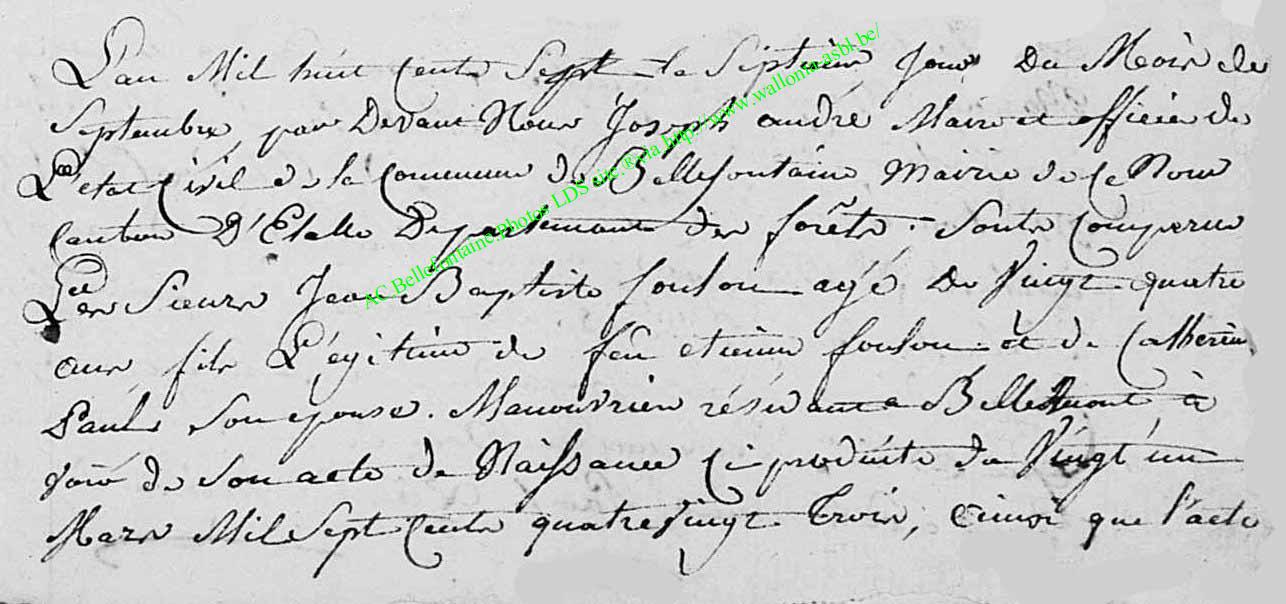 L'an Mil huit Cents Sept le Septiem Jour Du Mois de
Septembre par Devant Nous Joseph andré Maire et officier de
L'etat Civil de la Commune de Bellefontaine Mairie de Ce Nom
Canton D'Etalle Departement des forêts. Sonts Comperue
Les Sieurs Jean Baptiste foulon agé De Vingt quatre
ans fils Légitime de feu etienne foulon et de Catherine
Paul Son epouse. Manouvrier résidant a Bellefontaine à
voire de Son acte de Naissance Ci produite du Vingt un
Mars Mil Sept Cents quatre Vingt Trois, ainsi que l'acte
AC Bellefontaine.Photos LDS site.®via http://www.wallonia-asbl.be/